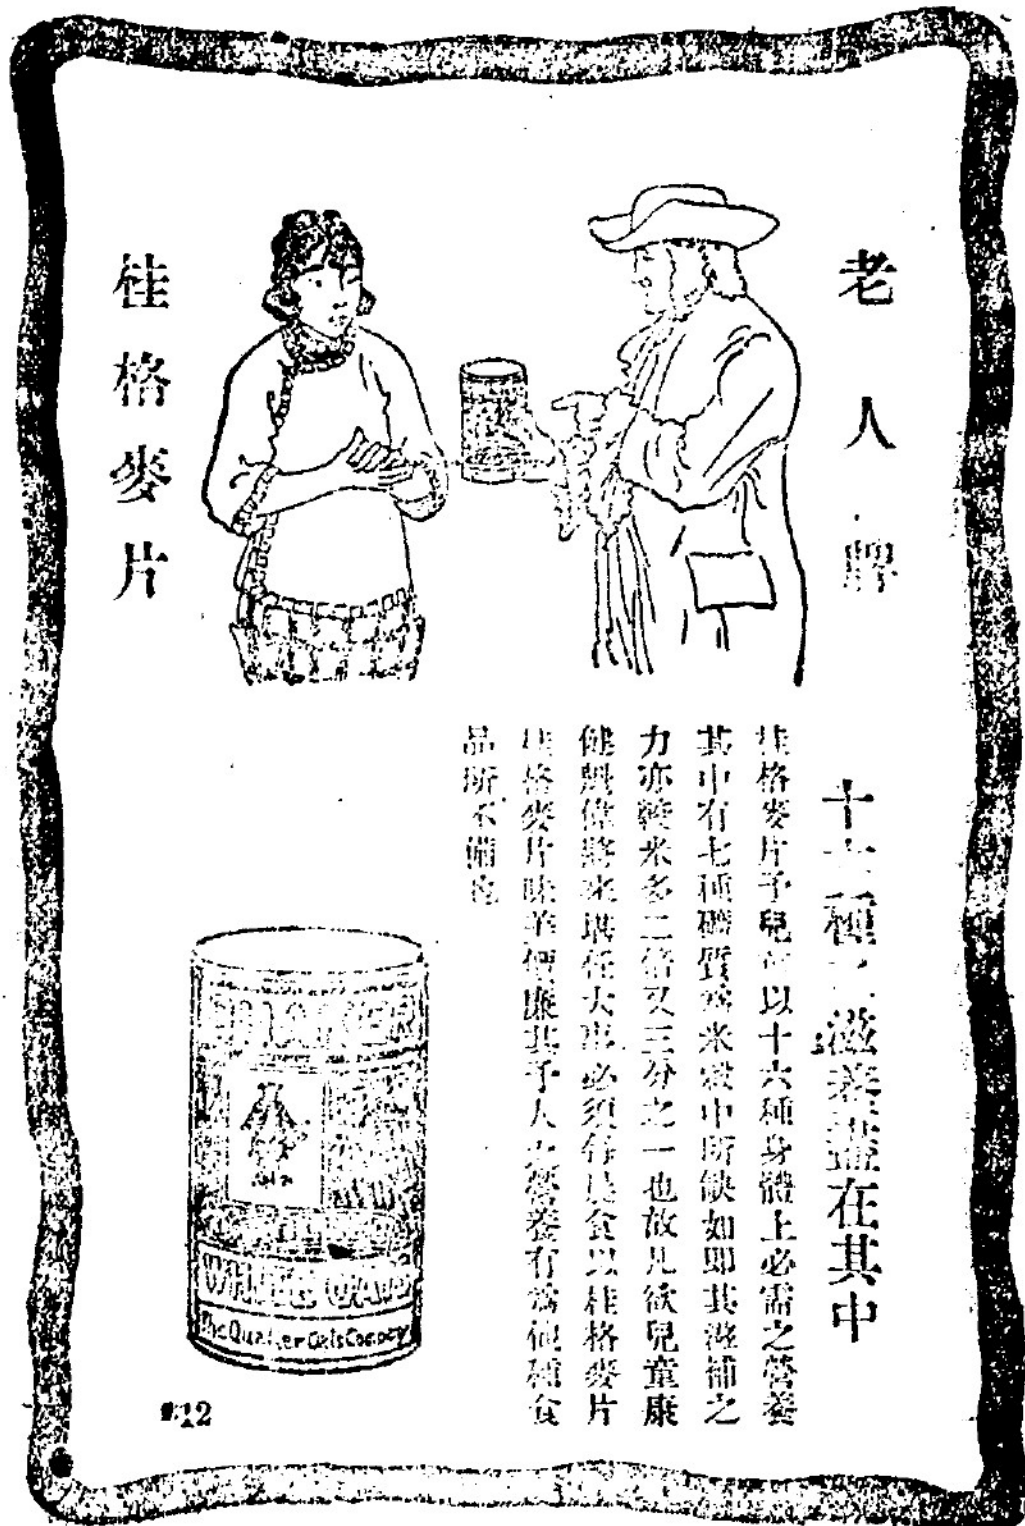 老人牌
桂格麥片
十六種之滋養盡在其中
桂格麥片予兒童以十六種身體上必需之營養
其中有七種礦質為米穀中所缺如即其滋補之
力亦較米多二倍又三分之一也故凡欲兒童康
健魁偉將來堪任大事必須每晨食以桂格麥片
桂格麥片味美價廉其予人之營養有為他種食
品所不備也
QUAKER
WHITE OATS
The Quaker Oats Company
#12